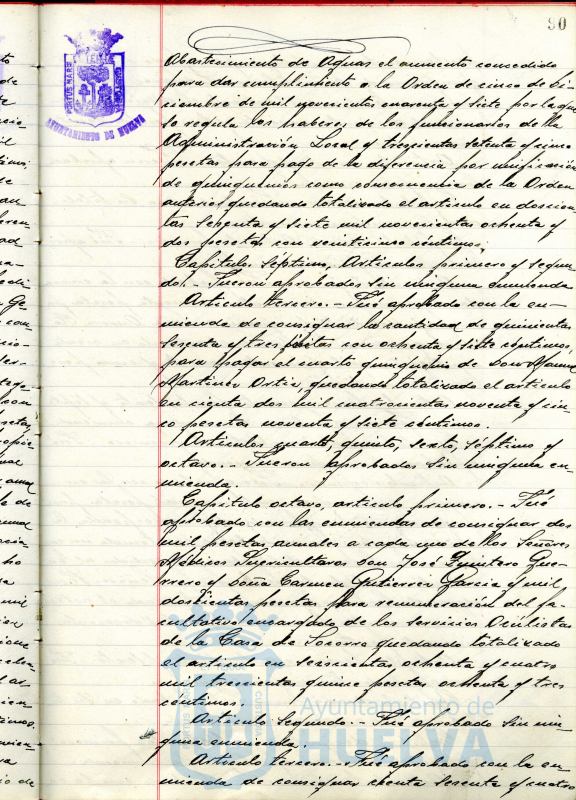 90
AYUNTAMIENTO DE HUELVA
Abastecimiento de Aguas el aumento concedido
para dar cumplimiento a la Orden de cinco de Di-
ciembre de mil novecientos cuarenta y siete por la que
se regula los haberes de los funcionarios de la
Administración Local y trescientas setenta y cinco
pesetas para pago de la diferencia por unificación
de quinquenios como consecuencia de la Orden
anterior quedando totalizado el artículo en doscien-
tas sesenta y siete mil novecientas ochenta y
dos pesetas con veinticinco céntimos.
Capítulos Séptimo, Artículos primero y segun-
do. - Fueron aprobados sin ninguna enmienda
Artículo tercero. - Fué aprobado con la en-
mienda de consignar la cantidad de quinientas
sesenta y tres pesetas con ochenta y siete céntimos,
para pagar el cuarto quinquenio de Don Manuel
Martínez Ortiz, quedando totalizado el artículo
en cienta dos mil cuatrocientas noventa y cin-
co pesetas noventa y siete céntimos.
Artículos cuarto, quinto, sexto, séptimo y
octavo. - Fueron aprobados sin ninguna en-
mienda.
Capítulo octavo, artículo primero. - Fué
aprobado con las enmiendas de consignar dos
mil pesetas anuales a cada uno de los Señores
Médicos Puericultores Don José Quintero Gue-
rrero y Doña Carmen Gutierrez Garcia y mil
doscientas pesetas para remuneración del fa-
cultativo encargado de los servicios Oculistas
de la Casa de Socorro quedando totalizado
el artículo en seiscientas ochenta y cuatro
mil trescientas quince pesetas ochenta y tres
céntimos.
Artículo Segundo. - Fué aprobado sin nin-
guna enmienda.
Artículo tercero. - Fué aprobado con la en-
mienda de consignar ciento sesenta y cuatro
Ayuntamiento de
HUELVA